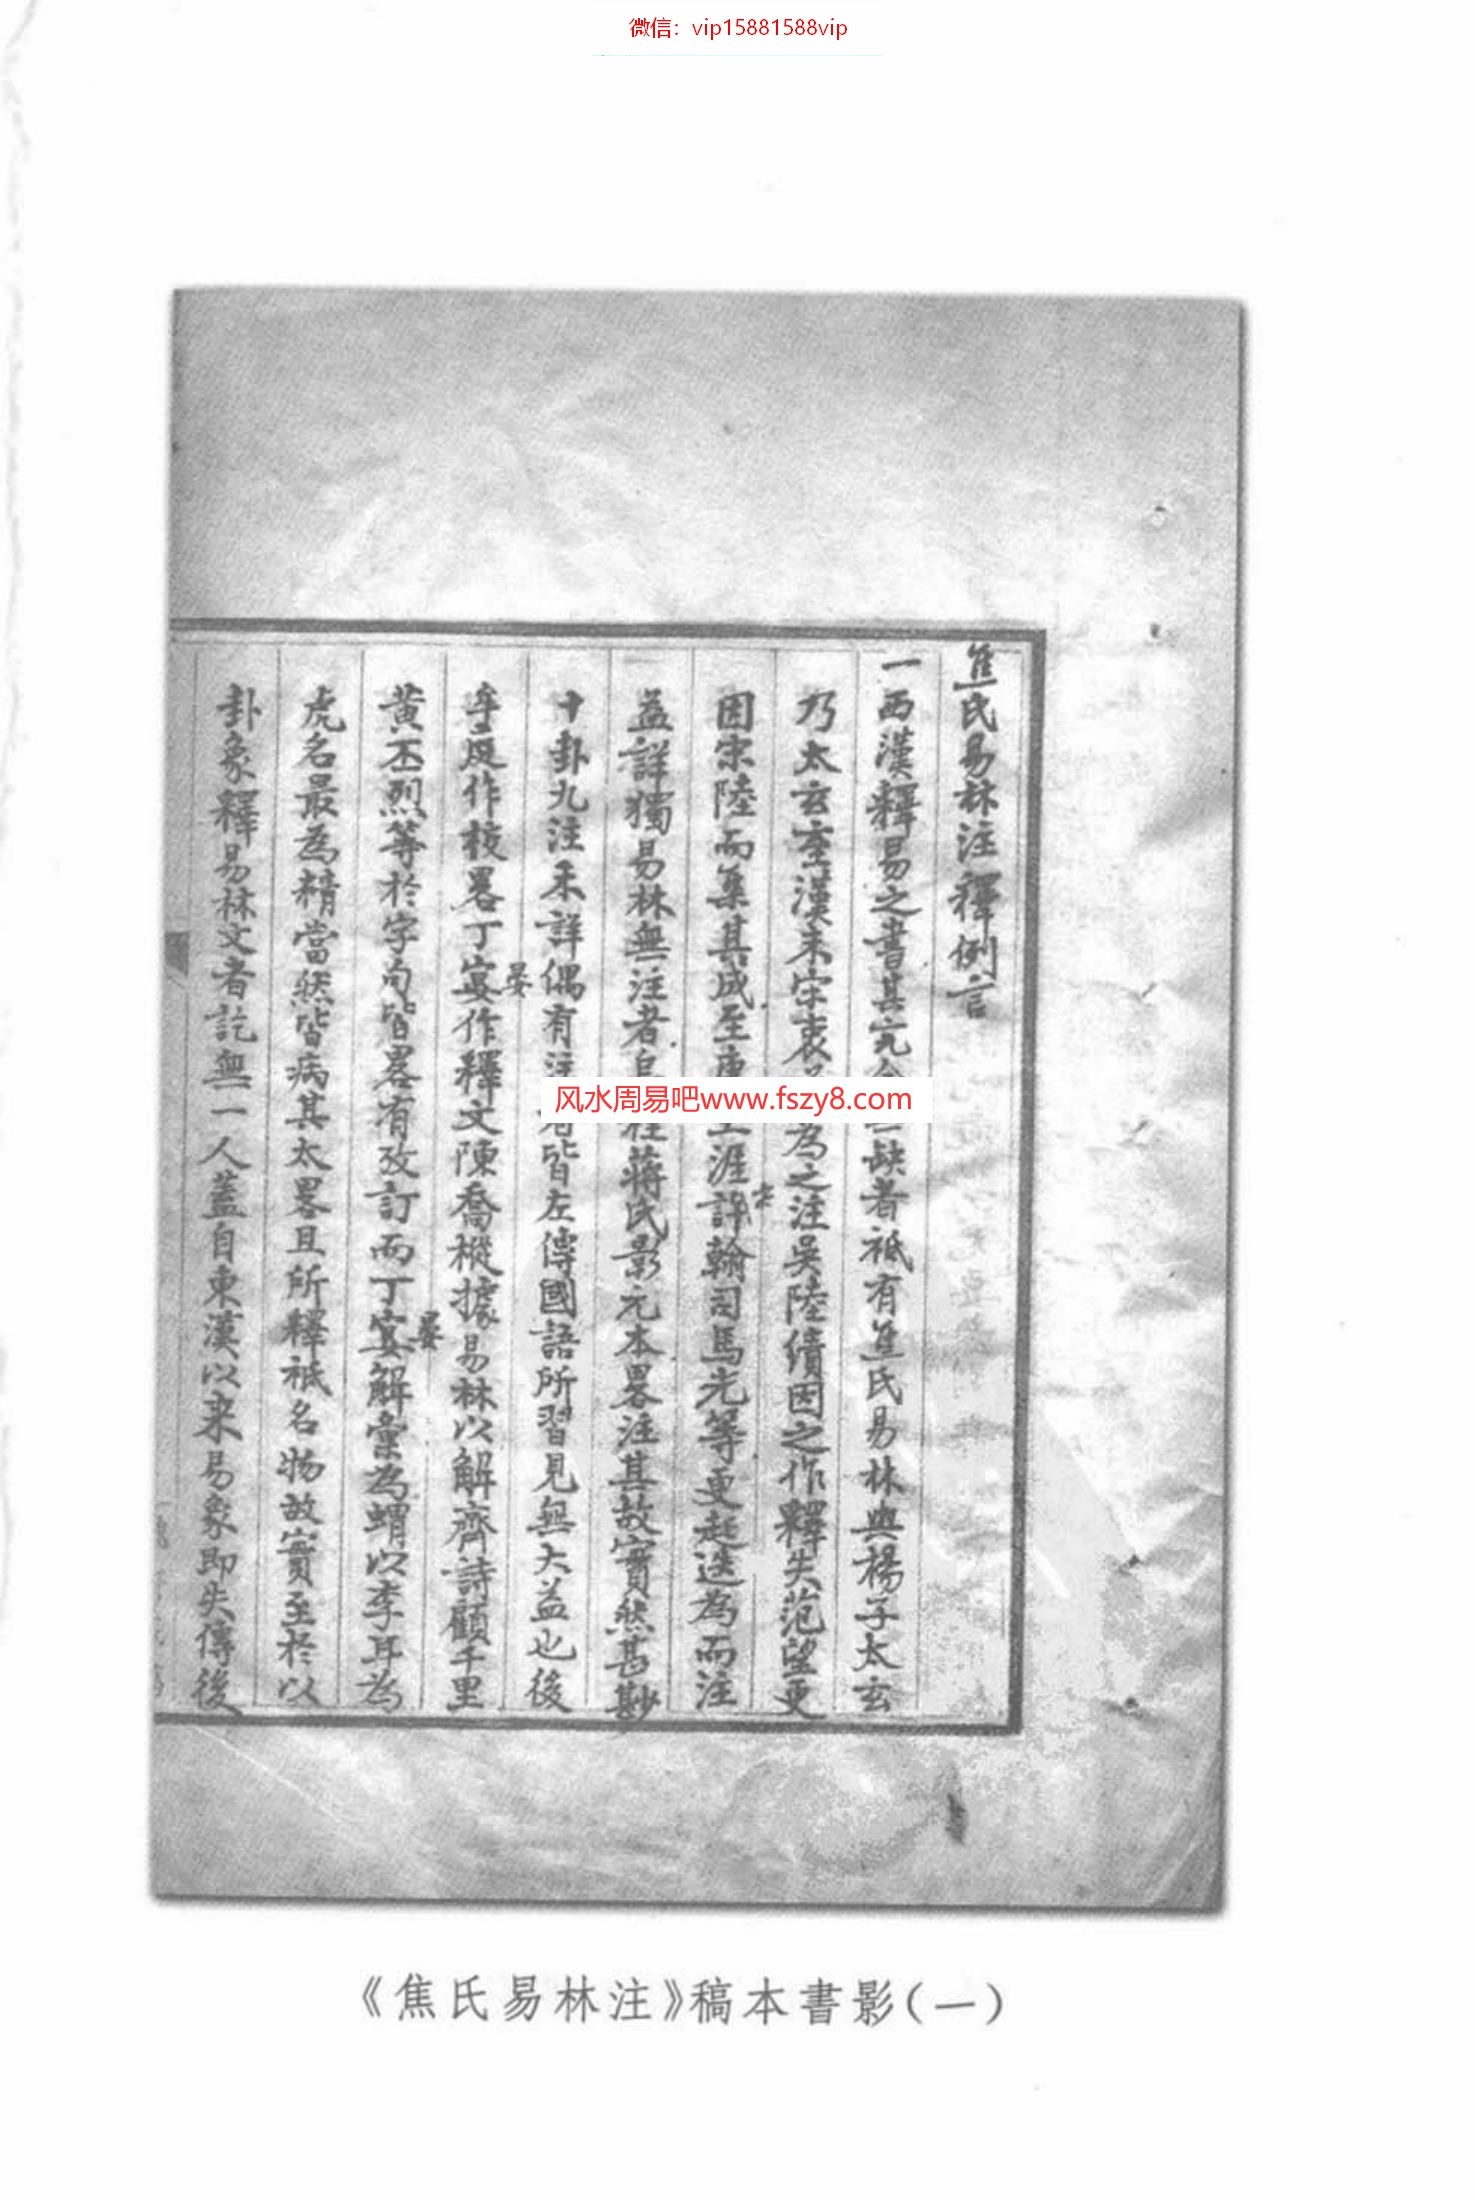 微信：vip15881588vip
焦氏易林注釋例言
一西漢釋易之書其完全無缺者祇有焦氏易林與楊子太玄
乃太玄至漢末宋衷為之注吳陸績因之作釋失范望更
因宋陸而集其成至唐王涯許翰司馬光等更起迭為而注
宋
益詳獨易林無注者 蔣氏影元本畧注其故實然甚尠
十卦九注不詳偶有注者皆左傳國語所習見無大益也後
牟庭作校畧丁宴作釋文陳喬樅據易林以解齊詩顧千里
晏
黃丕烈等於字句皆畧有攷訂而丁宴解彙為蝟以李耳為
晏
虎名最為精當然皆病其太畧且所釋祇名物故實至於以
卦象釋易林文者訖無一人蓋自東漢以來易象即失傳後
風水周易吧www.fszy8.com
《焦氏易林注》稿本書影(一)